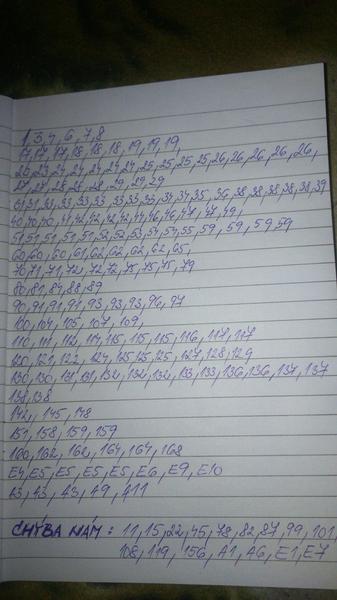 1, 3, 4, 6, 7, 8
17, 17, 17, 18, 18, 18, 19, 19, 19,
23, 23, 24, 24, 24, 24, 24, 25, 25, 25, 25, 26, 26, 26, 26, 26,
27, 27, 28, 28, 28, 29, 29, 29
31, 31, 32, 33, 33, 33, 33, 33, 33, 34, 34, 35, 36, 38, 38, 38, 38, 38, 39
40, 40, 40, 41, 42, 42, 42, 42, 44, 46, 46, 47, 47, 49,
51, 51, 51, 51, 51, 52, 52, 53, 54, 54, 55, 59, 59, 59, 59
60, 60, 60, 61, 62, 62, 62, 62, 65,
70, 71, 71, 72, 72, 72, 75, 75, 75, 79
80, 81, 84, 88, 89
90, 91, 91, 91, 93, 93, 93, 96, 97
100, 104, 105, 107, 109,
110, 111, 112, 114, 115, 115, 115, 116, 117, 117
120, 121, 122, 124, 125, 125, 125, 127, 128, 129
130, 130, 131, 131, 132, 132, 132, 133, 133, 136, 136, 137, 137
138, 138
142, 145, 148
151, 158, 159, 159
160, 162, 162, 164, 164, 168
E4, E5, E5, E5, E5, E6, E9, E10
A3, A3, A3, A9, A11
CHÝBA NÁM : 11, 15, 22, 45, 78, 82, 87, 99, 101,
108, 119, 156, A1, A6, E1, E7